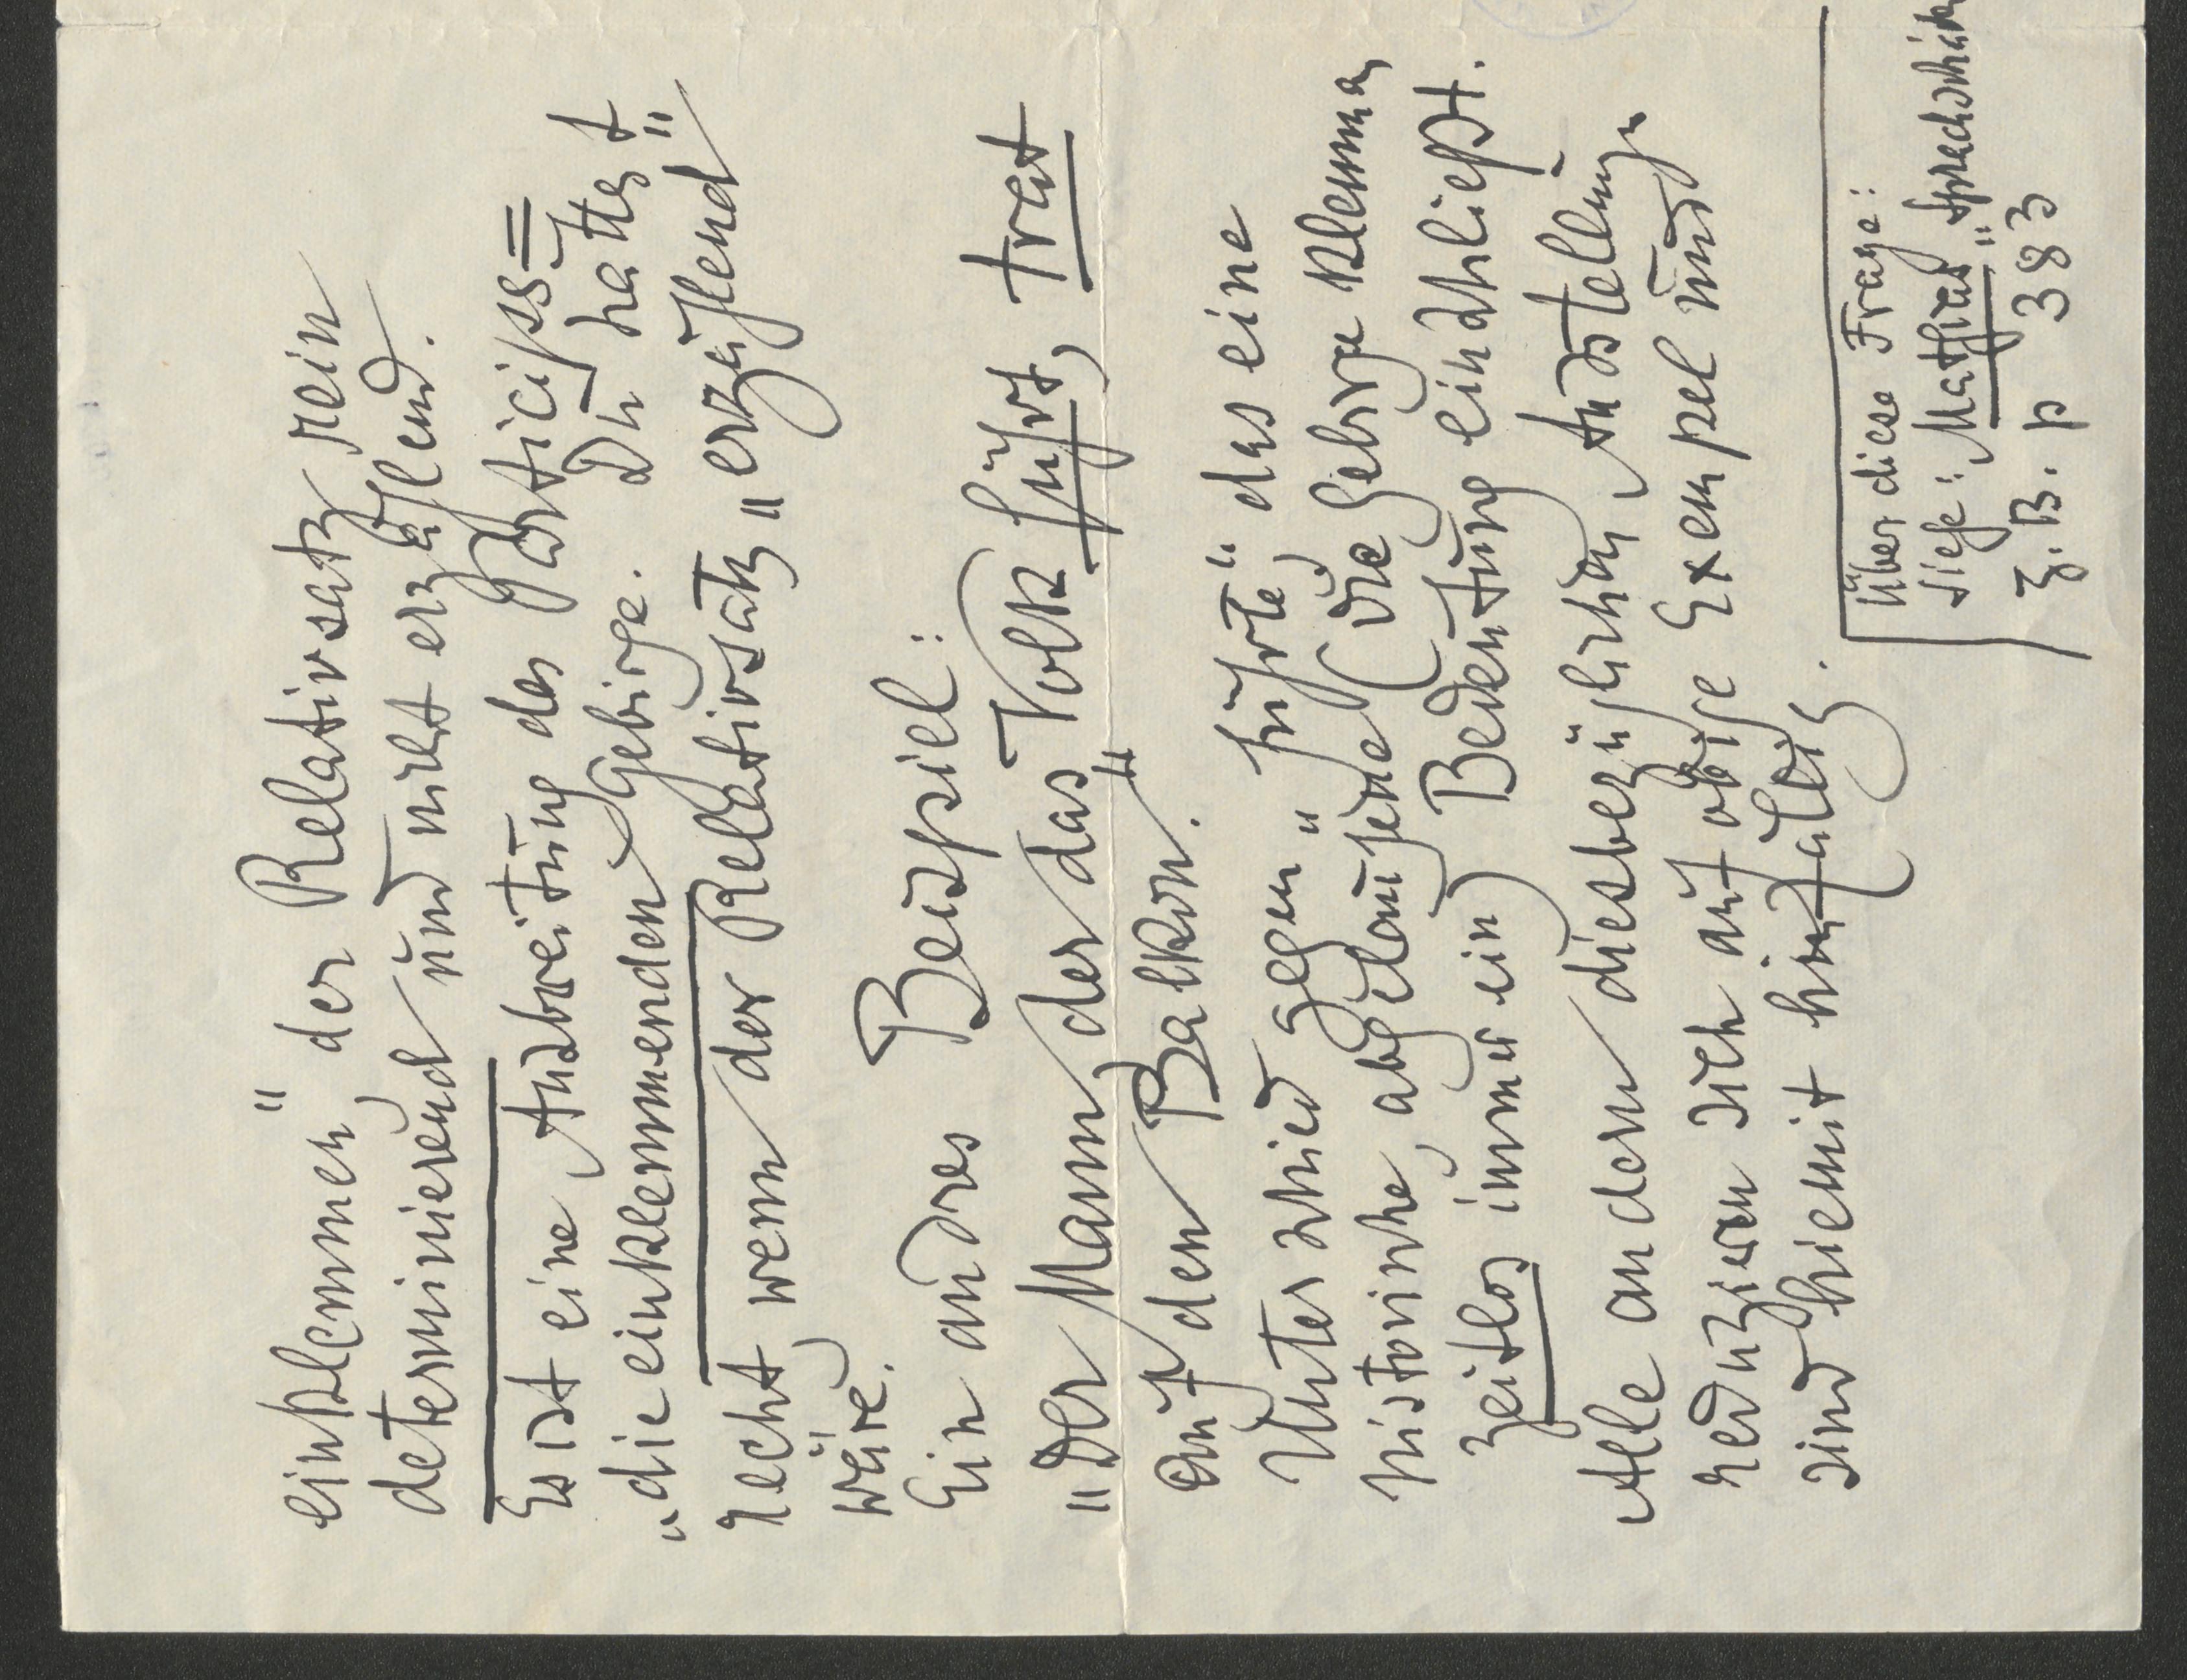 einklemmen", der Relativsatz rein
determinierend und nicht erzählend.
Es ist eine Ausbreitung des Particips =
„die einklemmenden Gebirge. Du hattest
recht, wenn der Relativsatz „erzählend"
wäre.
Ein andres Beispiel:
„Der Mann, der das Volk führt, trat
auf den Balkon."
Unterschied gegen „führte", das eine
historische, abgelaufene (die Gebirge klemmen
zeitlos immer ein) Bedeutung einschließt.
Alle andern diesbezüglichen Ausstellungen
reduzieren sich auf obige Exempel und
sind hiemit hinfällig.
Über diese Frage:
siehe: Mathias „Sprachschäden
z. B. p 383